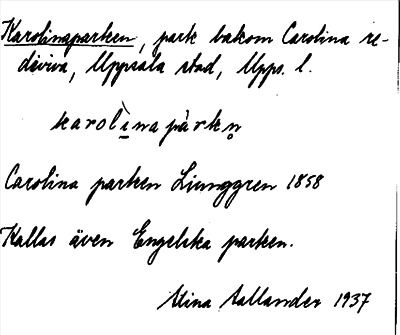 Karolinaparken, park bakom Carolina re-
diviva, Uppsala stad, Upps. l.
karolìnapàrkn̥
Carolina parken Ljunggren 1858
Kallas även Engelska parken.
Stina Aallander 1937